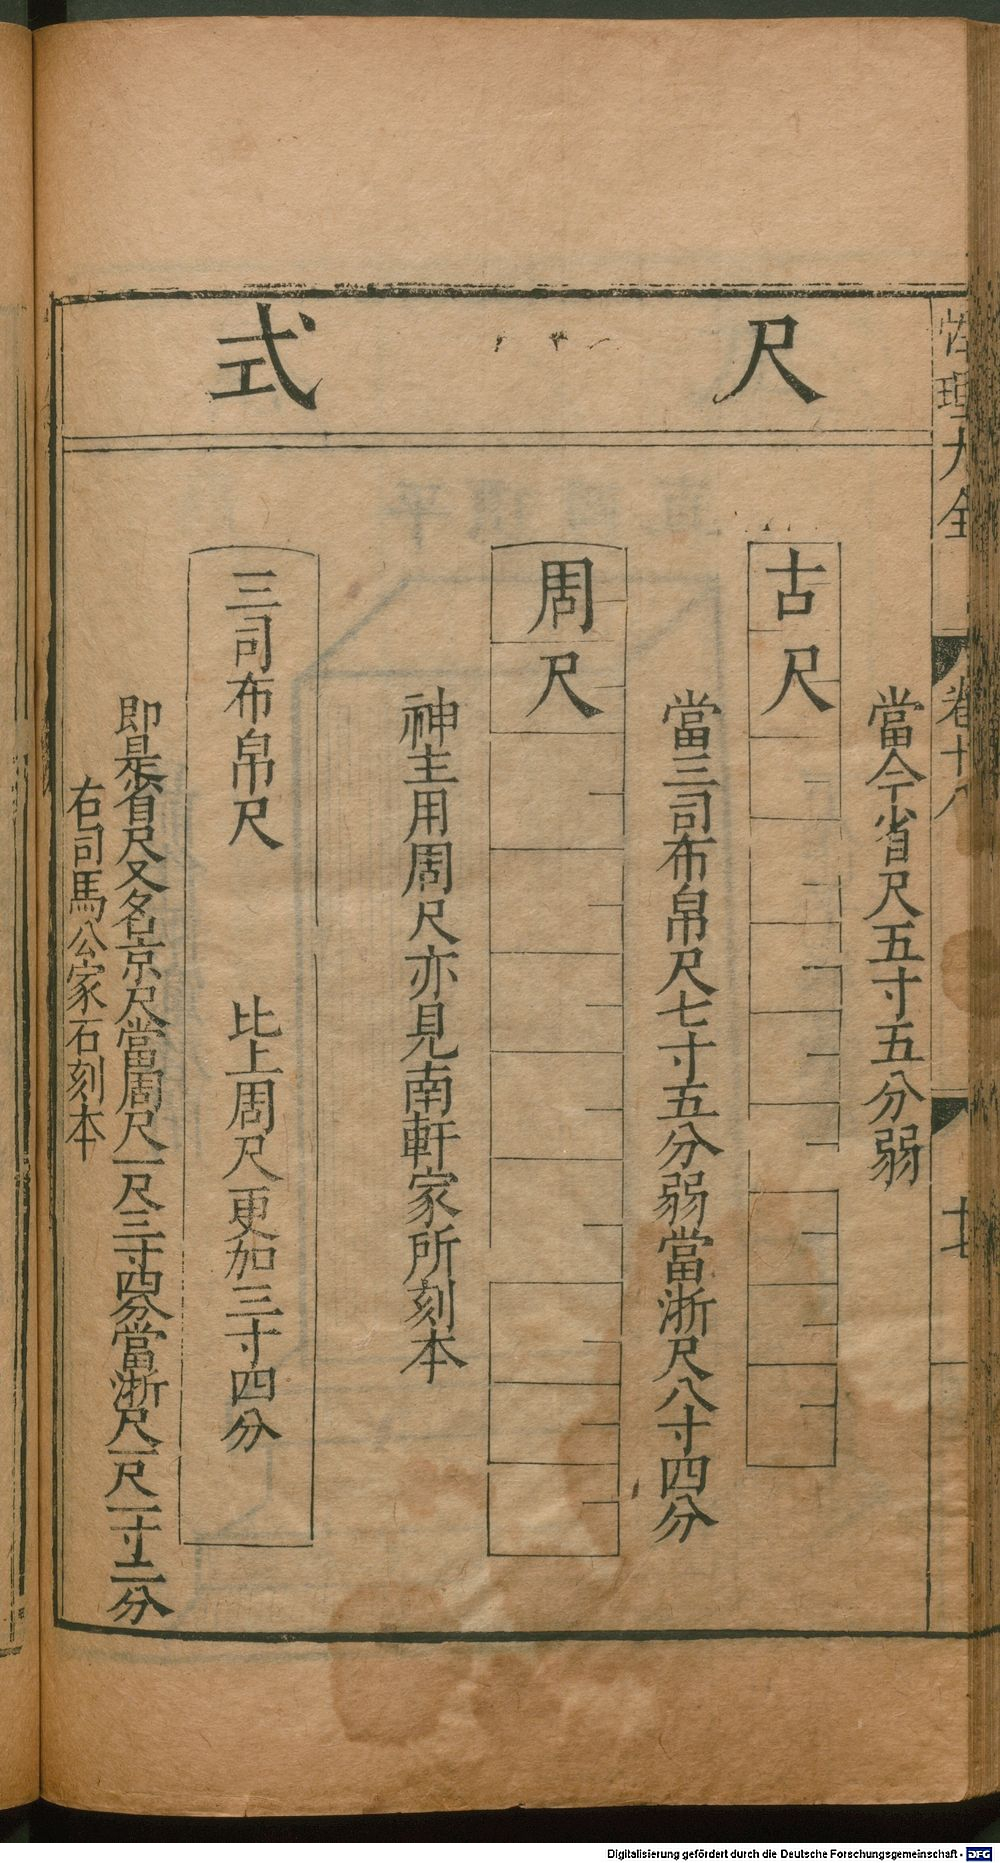 性理大全
卷十八
尺式
古尺
當今省尺五寸五分弱
周尺
當三司布帛尺七寸五分弱當浙尺八寸四分
神主用周尺亦見南軒家所刻本
三司布帛尺
比上周尺更加三寸四分
即是省尺又名京尺當周尺一尺三寸四分當浙尺一尺一寸二分
右司馬公家石刻本
Digitalisierung gefördert durch die Deutsche Forschungsgemeinschaft - DFG